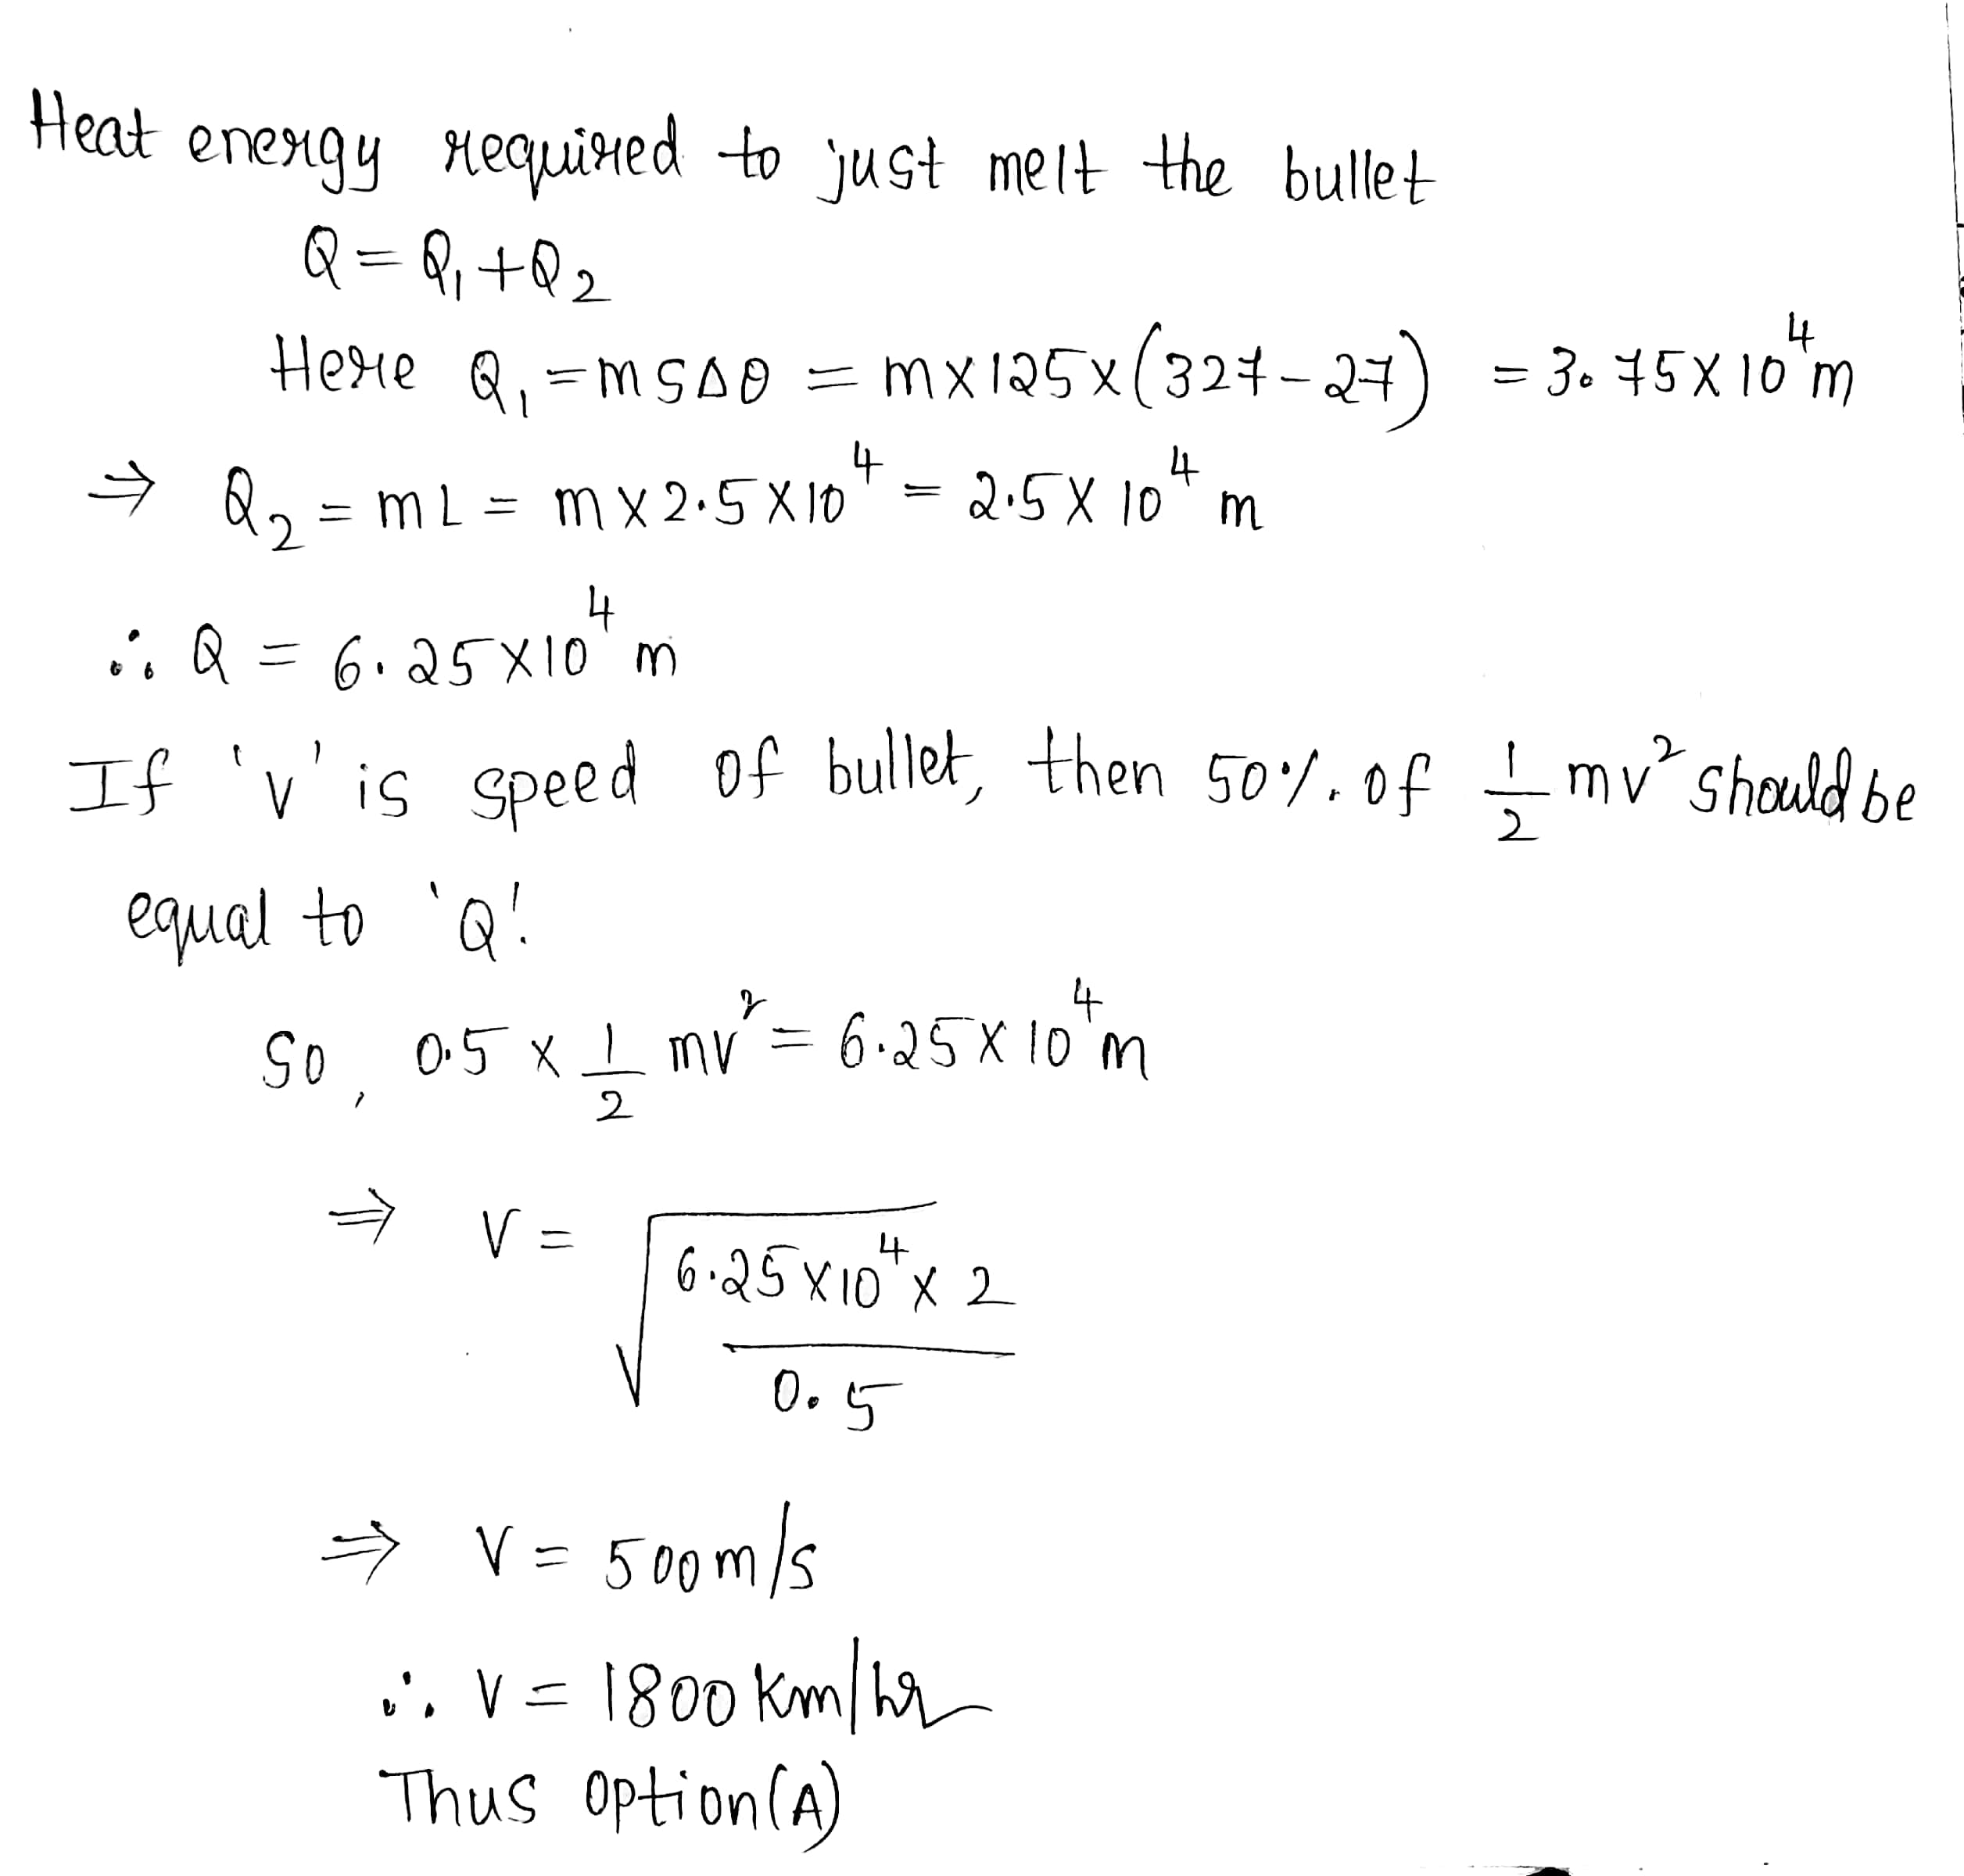 Heat energy required to just melt the bullet
Q = Q₁ + Q₂
Here Q₁ = msΔθ = m×125×(327-27) = 3.75×10⁴m
⇒ Q₂ = mL = m×2.5×10⁴ = 2.5×10⁴ m
∴ Q = 6.25×10⁴ m
If 'v' is speed of bullet, then 50% of 1/2 mv² should be
equal to 'Q'.
So, 0.5 × 1/2 mv² = 6.25×10⁴m
⇒ V = √(6.25×10⁴×2 / 0.5)
⇒ V = 500m/s
∴ V = 1800 km/hr
Thus option(A)